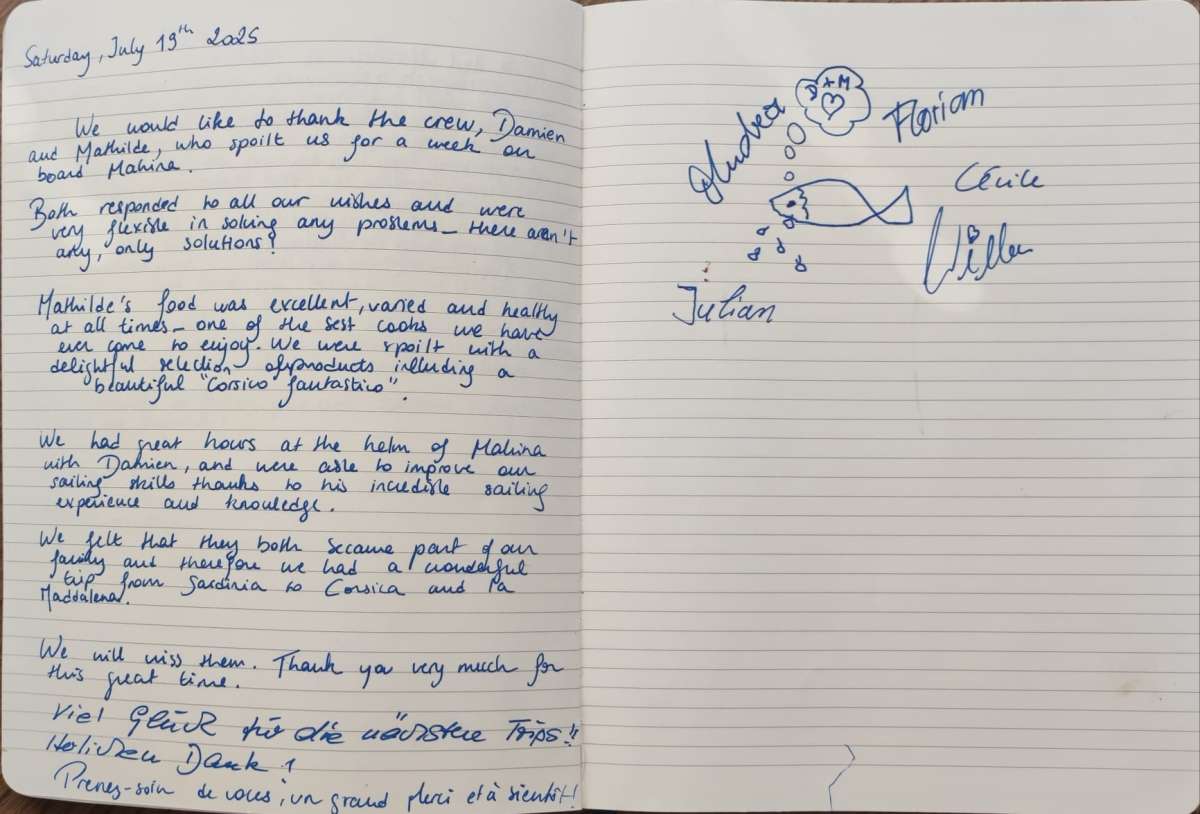 Saturday, July 19th 2025
We would like to thank the crew, Damien
and Mathilde, who spoilt us for a week on
board Mahina.
Both responded to all our wishes and were
very flexible in solving any problems - there aren't
any, only solutions!
Mathilde's food was excellent, varied and healthy
at all times - one of the best cooks we have
ever come to enjoy. We were spoilt with a
delightful selection of products including a
beautiful "Corsico fantastico".
We had great hours at the helm of Mahina
with Damien, and were able to improve our
sailing skills thanks to his incredible sailing
experience and knowledge.
We felt that they both became part of our
family and therefore we had a wonderful
trip from Sardinia to Corsica and la
Maddalena.
We will miss them. Thank you very much for
this great time.
Viel Glück für die nächsten Trips!!
Dank!
Prenez-soin de vous, un grand merci et à bientôt!
D+M
Florian
Cécile
Julian